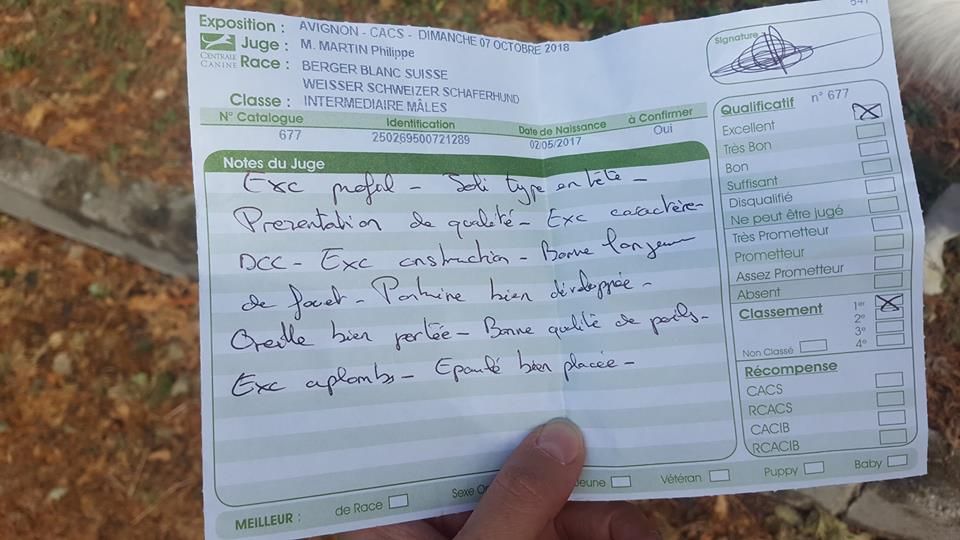 547
Exposition : AVIGNON - CACS - DIMANCHE 07 OCTOBRE 2018
CENTRALE CANINE
Juge : M. MARTIN Philippe
Race : BERGER BLANC SUISSE
WEISSER SCHWEIZER SCHAFERHUND
Classe : INTERMEDIAIRE MÂLES
N° Catalogue Identification Date de Naissance à Confirmer
677 250269500721289 02/05/2017 Oui
Notes du Juge
Exc - type en tête -
Prezentation de qualité - Exc caractère -
DCC - Exc construction - Bonne longueur
de fouet - Poitrine bien développée -
Oreille bien portée - Bonne qualité de poils -
Exc aplombs - Epaule bien placée -
Signature
Qualificatif n° 677
Excellent
Très Bon
Bon
Suffisant
Disqualifié
Ne peut être jugé
Très Prometteur
Prometteur
Assez Prometteur
Absent
Classement 1er
2e
3e
Non Classé 4e
Récompense
CACS
RCACS
CACIB
RCACIB
MEILLEUR : de Race Sexe Jeune Vétéran Puppy Baby